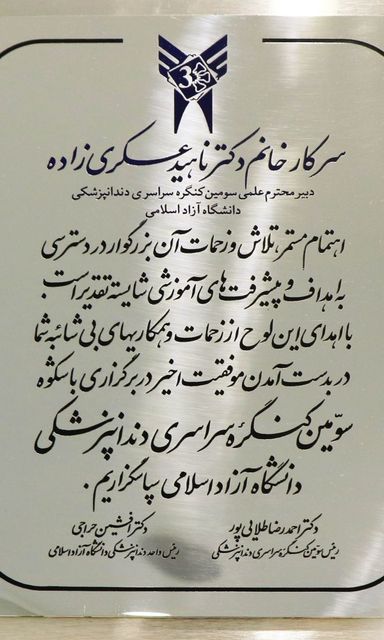 3
سرکار خانم دکتر ناهید عسکری زاده
دبیر محترم علمی سومین کنگره سراسری دندانپزشکی
دانشگاه آزاد اسلامی
اهتمام مستمر، تلاش و زحمات آن بزرگوار در دسترسی
به اهداف و پیشرفت‌های آموزشی شایسته تقدیر است
با اهدای این لوح از زحمات و همکاریهای بی شائبه شما
در بدست آمدن موفقیت اخیر در برگزاری باشکوه
سوّمین کنگره سراسری دندانپزشکی
دانشگاه آزاد اسلامی سپاسگزاریم .
دکتر احمدرضا طلایی پور
رئیس سوّمین کنگره سراسری دندانپزشکی
دکتر افشین حراجی
رئیس واحد دندانپزشکی دانشگاه آزاد اسلامی